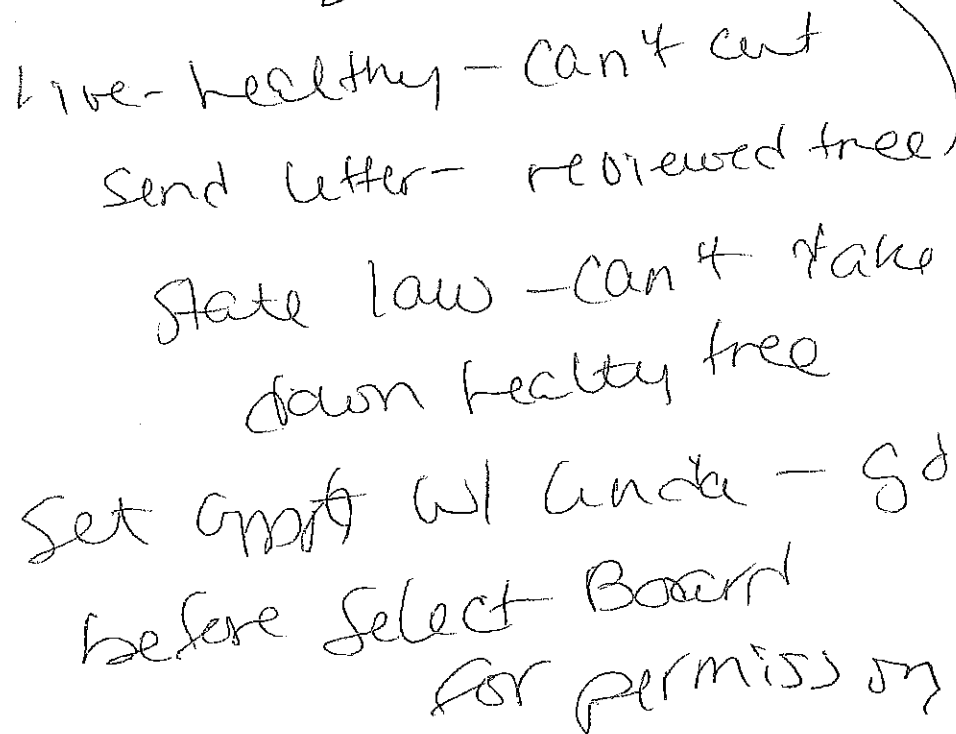 Live-healthy - can't cut
send letter - reviewed tree
State law - can't take
down healty tree
Set appt w/ Linda - go
before Select Board
for permission